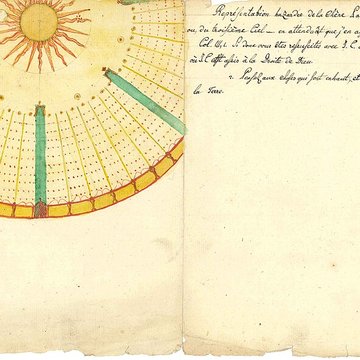 Représentation hazardée de la Mère La
ou, du troisième Ciel — en attendant que j'en a
Col. III, 1. Si donc vous êtes ressuscités avec J. C.
où J. C. est assis à la Droite de Dieu
2. Pensez aux choses qui sont enhaut, et
la Terre.